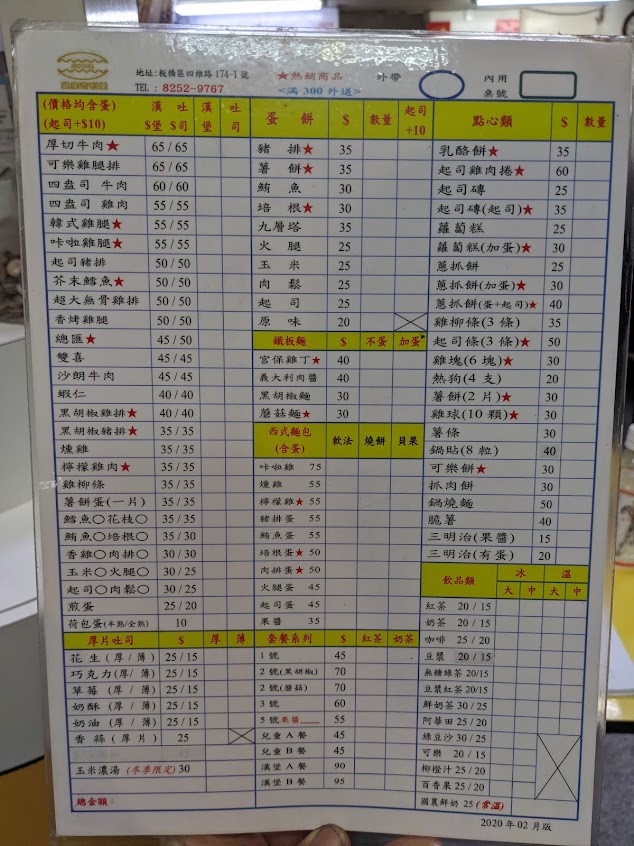 地址:板橋區四維路 174-1 號
TEL : 8252-9767
★熱銷商品
<滿 300 外送>
外帶
內用
桌號
(價格均含蛋)
(起司+$10)
漢堡$ 吐司$ 漢堡 吐司
厚切牛肉★ 65 / 65
可樂雞腿排 65 / 65
四盎司 牛肉 60 / 60
四盎司 雞肉 55 / 55
韓式雞腿★ 55 / 55
咔啦雞腿★ 55 / 55
起司豬排 50 / 50
芥末鱈魚★ 50 / 50
超大無骨雞排 50 / 50
香烤雞腿 50 / 50
總匯★ 45 / 50
雙喜 45 / 45
沙朗牛肉 45 / 45
蝦仁 40 / 40
黑胡椒雞排★ 40 / 40
黑胡椒豬排★ 35 / 35
燻雞 35 / 35
檸檬雞肉★ 35 / 35
雞柳條 35 / 35
薯餅蛋(一片) 35 / 35
鱈魚〇花枝〇 35 / 35
鮪魚〇培根〇 35 / 30
香雞〇肉排〇 30 / 30
玉米〇火腿〇 30 / 25
起司〇肉鬆〇 30 / 25
煎蛋 25 / 20
荷包蛋(半熟/全熟) 10
厚片吐司 $ 厚 薄
花生 (厚 / 薄) 25 / 15
巧克力(厚 / 薄) 25 / 15
草莓 (厚 / 薄) 25 / 15
奶酥 (厚 / 薄) 25 / 15
奶油 (厚 / 薄) 25 / 15
香蒜 (厚片) 25
玉米濃湯 (冬季限定) 30
總金額:
蛋 餅 $ 數量 起司+10
豬 排★ 35
薯 餅★ 35
鮪 魚 30
培 根★ 30
九層塔 35
火 腿 25
玉 米 25
肉 鬆 25
起 司 25
原 味 20
鐵板麵 $ 不蛋 加蛋
宮保雞丁★ 40
義大利肉醬 40
黑胡椒麵 30
蘑菇麵★ 30
西式麵包
(含蛋)
軟法 燒餅 貝果
咔啦雞 75
燻雞 55
檸檬雞★ 55
豬排蛋 55
鮪魚蛋 55
培根蛋★ 50
肉排蛋★ 50
火腿蛋 45
起司蛋 45
果醬 35
套餐系列 $ 紅茶 奶茶
1 號 45
2 號(黑胡椒) 70
2 號(蘑菇) 70
3 號 60
5 號果醬____ 55
兒童 A 餐 45
兒童 B 餐 45
漢堡 A 餐 90
漢堡 B 餐 95
點心類 $ 數量
乳酪餅★ 35
起司雞肉捲★ 60
起司磚 25
起司磚(起司)★ 35
蘿蔔糕 25
蘿蔔糕(加蛋)★ 30
蔥抓餅 25
蔥抓餅(加蛋)★ 30
蔥抓餅(蛋+起司)★ 40
雞柳條(3 條) 35
起司條(3 條)★ 50
雞塊(6 塊)★ 30
熱狗(4 支) 20
薯餅(2 片)★ 30
雞球(10 顆)★ 30
薯條 30
鍋貼(8 粒) 40
可樂餅★ 30
抓肉餅 30
鍋燒麵 50
脆薯 40
三明治(果醬) 15
三明治(有蛋) 20
飲品類 冰 溫
大 中 大 中
紅茶 20 / 15
奶茶 20 / 15
咖啡 25 / 20
豆漿 20 / 15
無糖綠茶 20/15
豆漿紅茶 20/15
鮮奶茶 30 / 25
阿華田 25 / 20
綠豆沙 30 / 25
可樂 20 / 15
柳橙汁 25 / 20
百香果 25 / 20
國農鮮奶 25 (常溫)
2020 年 02 月版